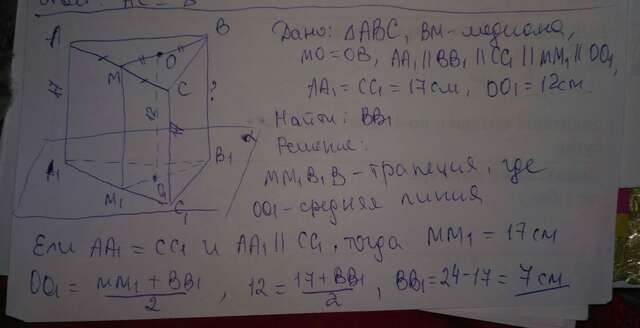 A B O M C 17 12 17 ? A₁ B₁ M₁ O₁ C₁ α
Дано: △ABC, BM-медиана,
MO=OB, AA₁ || BB₁ || CC₁ || MM₁ || OO₁,
AA₁ = CC₁ = 17см, OO₁ = 12см.
Найти: BB₁
Решение:
MM₁B₁B - трапеция, где
OO₁-средняя линия
Если AA₁ = CC₁ и AA₁ || CC₁, тогда MM₁ = 17 см
OO₁ = (MM₁ + BB₁)/2, 12 = (17+BB₁)/2, BB₁=24-17 = 7 см